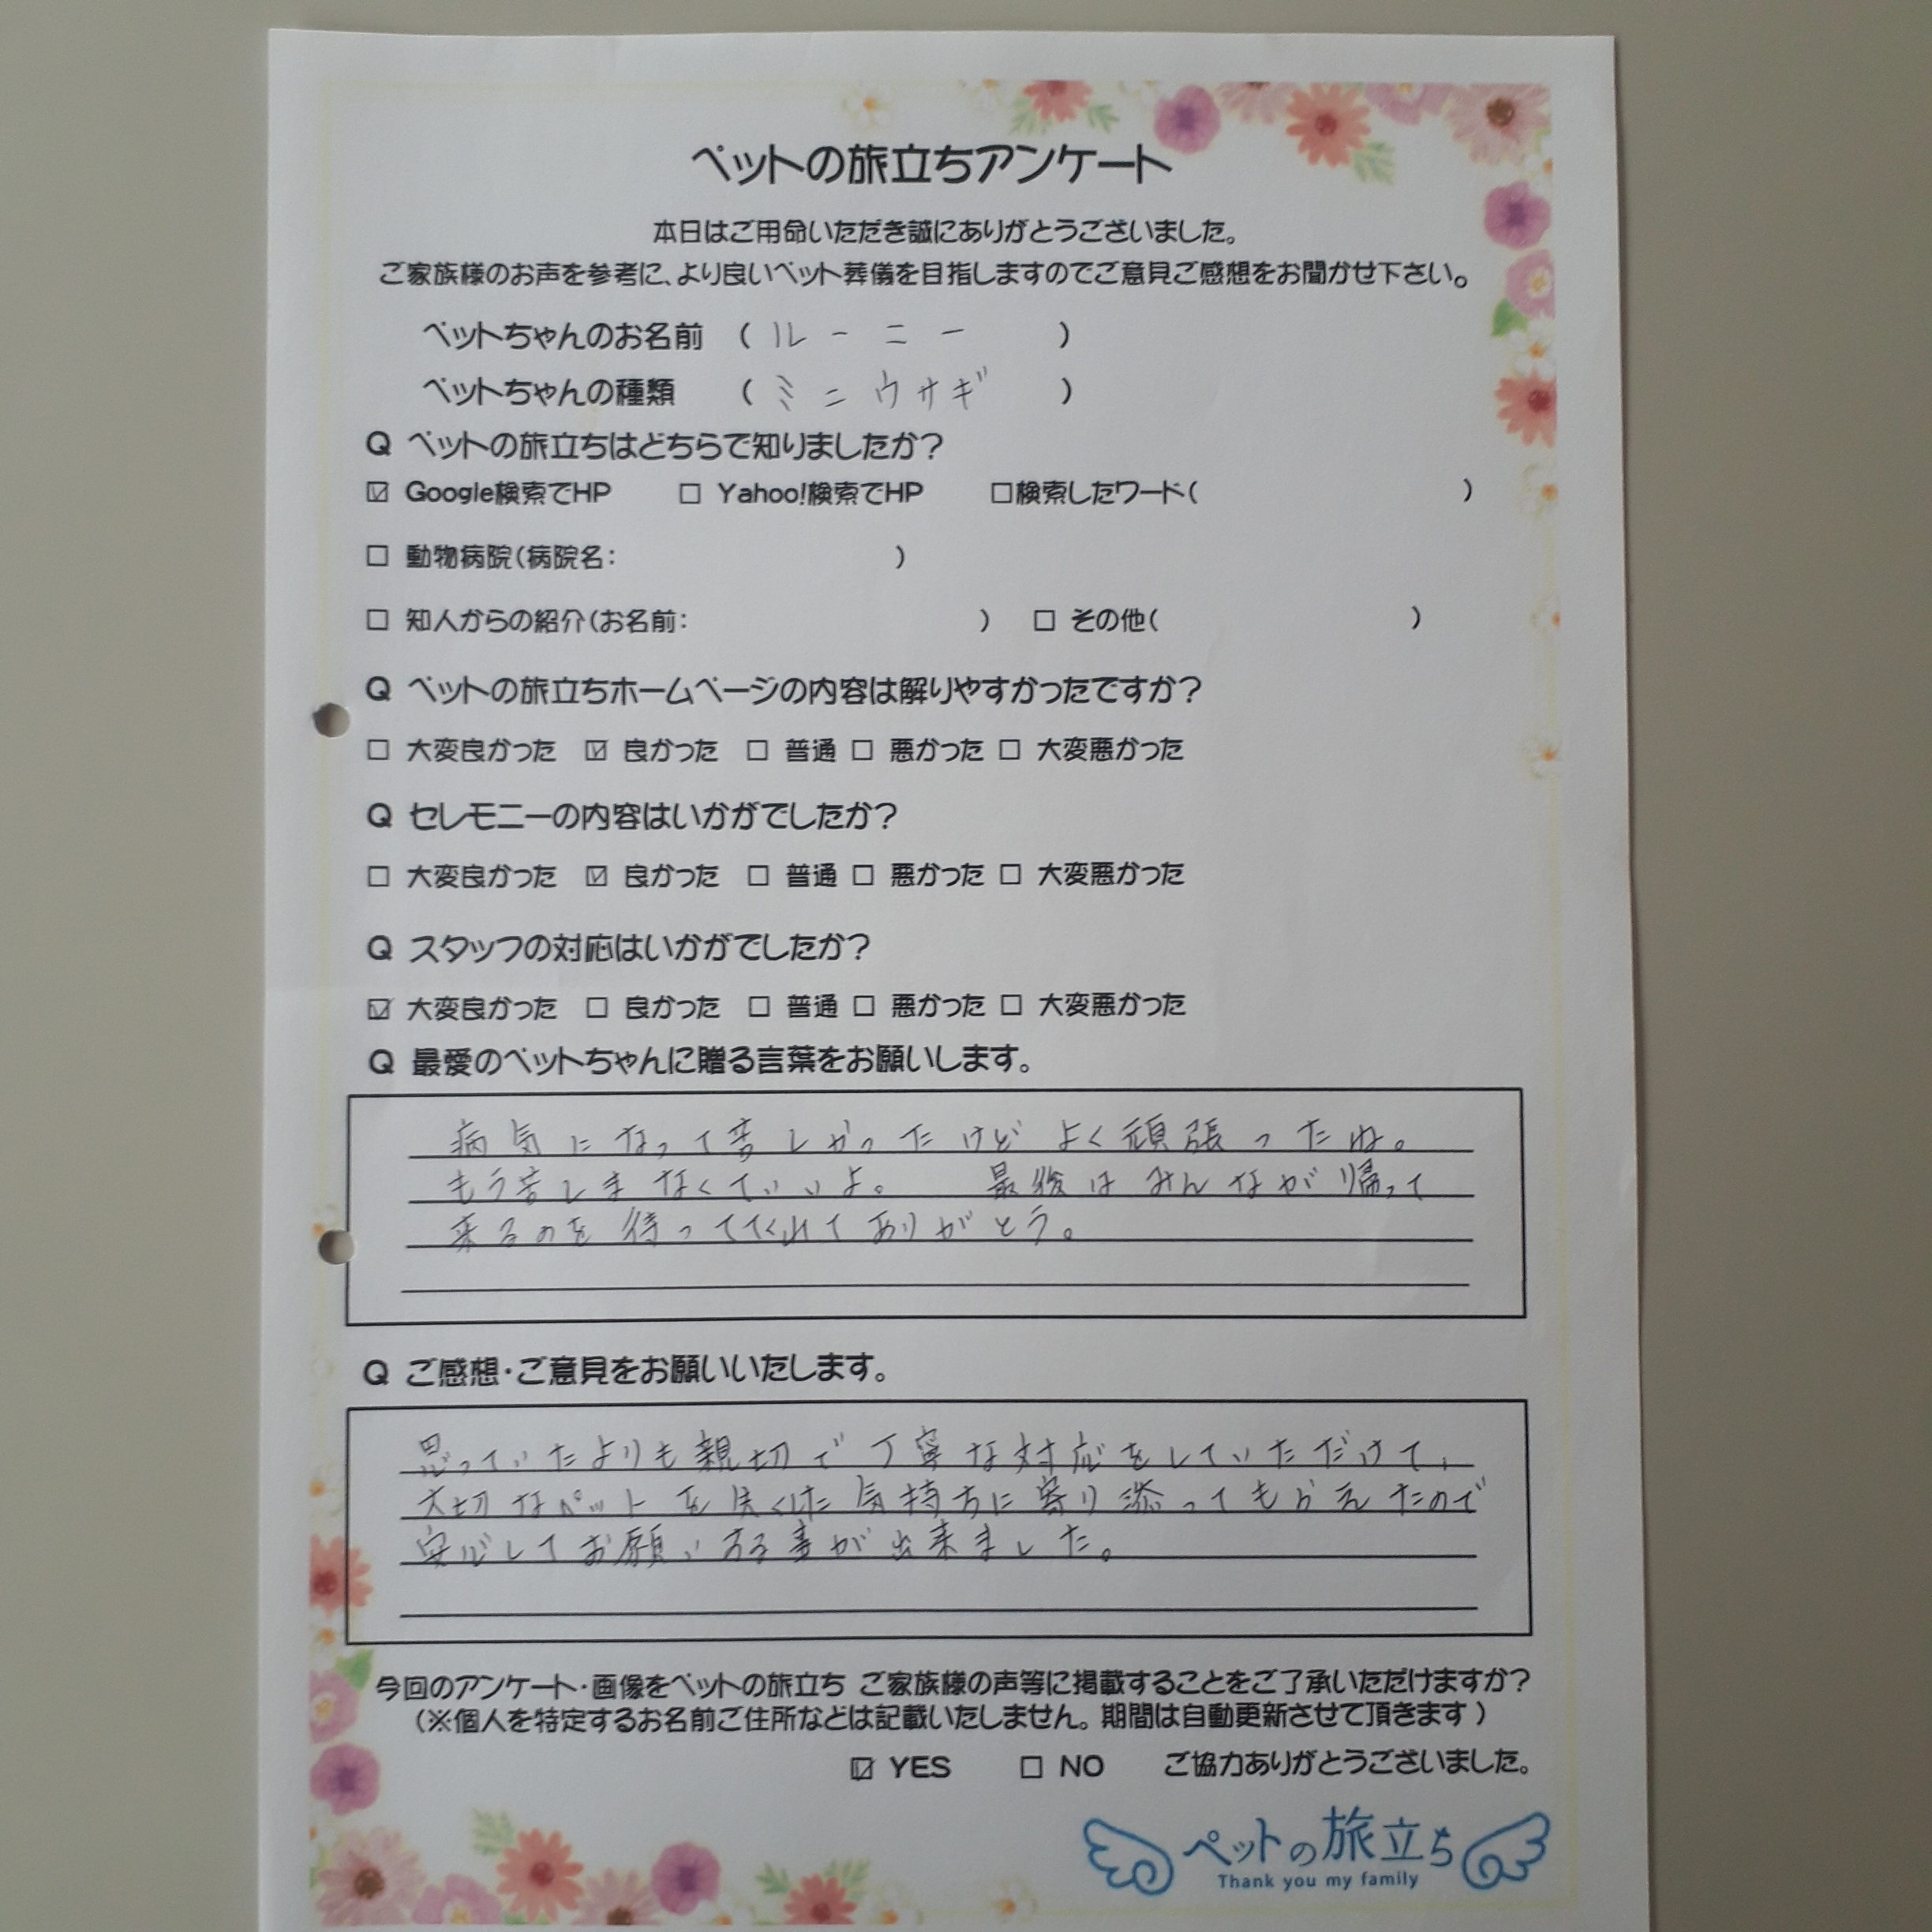 ペットの旅立ちアンケート
本日はご用命いただき誠にありがとうございました。
ご家族様のお声を参考に、より良いペット葬儀を目指しますのでご意見ご感想をお聞かせ下さい。
ペットちゃんのお名前 ( ルーニー )
ペットちゃんの種類 ( ミニウサギ )
Q ペットの旅立ちはどちらで知りましたか?
☑ Google検索でHP □ Yahoo!検索でHP □検索したワード( )
□ 動物病院(病院名: )
□ 知人からの紹介(お名前: ) □ その他( )
Q ペットの旅立ちホームページの内容は解りやすかったですか?
□ 大変良かった ☑ 良かった □ 普通 □ 悪かった □ 大変悪かった
Q セレモニーの内容はいかがでしたか?
□ 大変良かった ☑ 良かった □ 普通 □ 悪かった □ 大変悪かった
Q スタッフの対応はいかがでしたか?
☑ 大変良かった □ 良かった □ 普通 □ 悪かった □ 大変悪かった
Q 最愛のペットちゃんに贈る言葉をお願いします。
病気になって苦しかったけどよく頑張ったね。
もう苦しまなくていいよ。 最後はみんなが帰って
来るのを待っててくれてありがとう。
Q ご感想・ご意見をお願いいたします。
思っていたよりも親切で丁寧な対応をしていただけて、
大切なペットを失くした気持ちに寄り添ってもらえたので
安心してお願いする事が出来ました。
今回のアンケート・画像をペットの旅立ち ご家族様の声等に掲載することをご了承いただけますか?
(※個人を特定するお名前ご住所などは記載いたしません。期間は自動更新させて頂きます)
☑ YES □ NO ご協力ありがとうございました。
ペットの旅立ち
Thank you my family